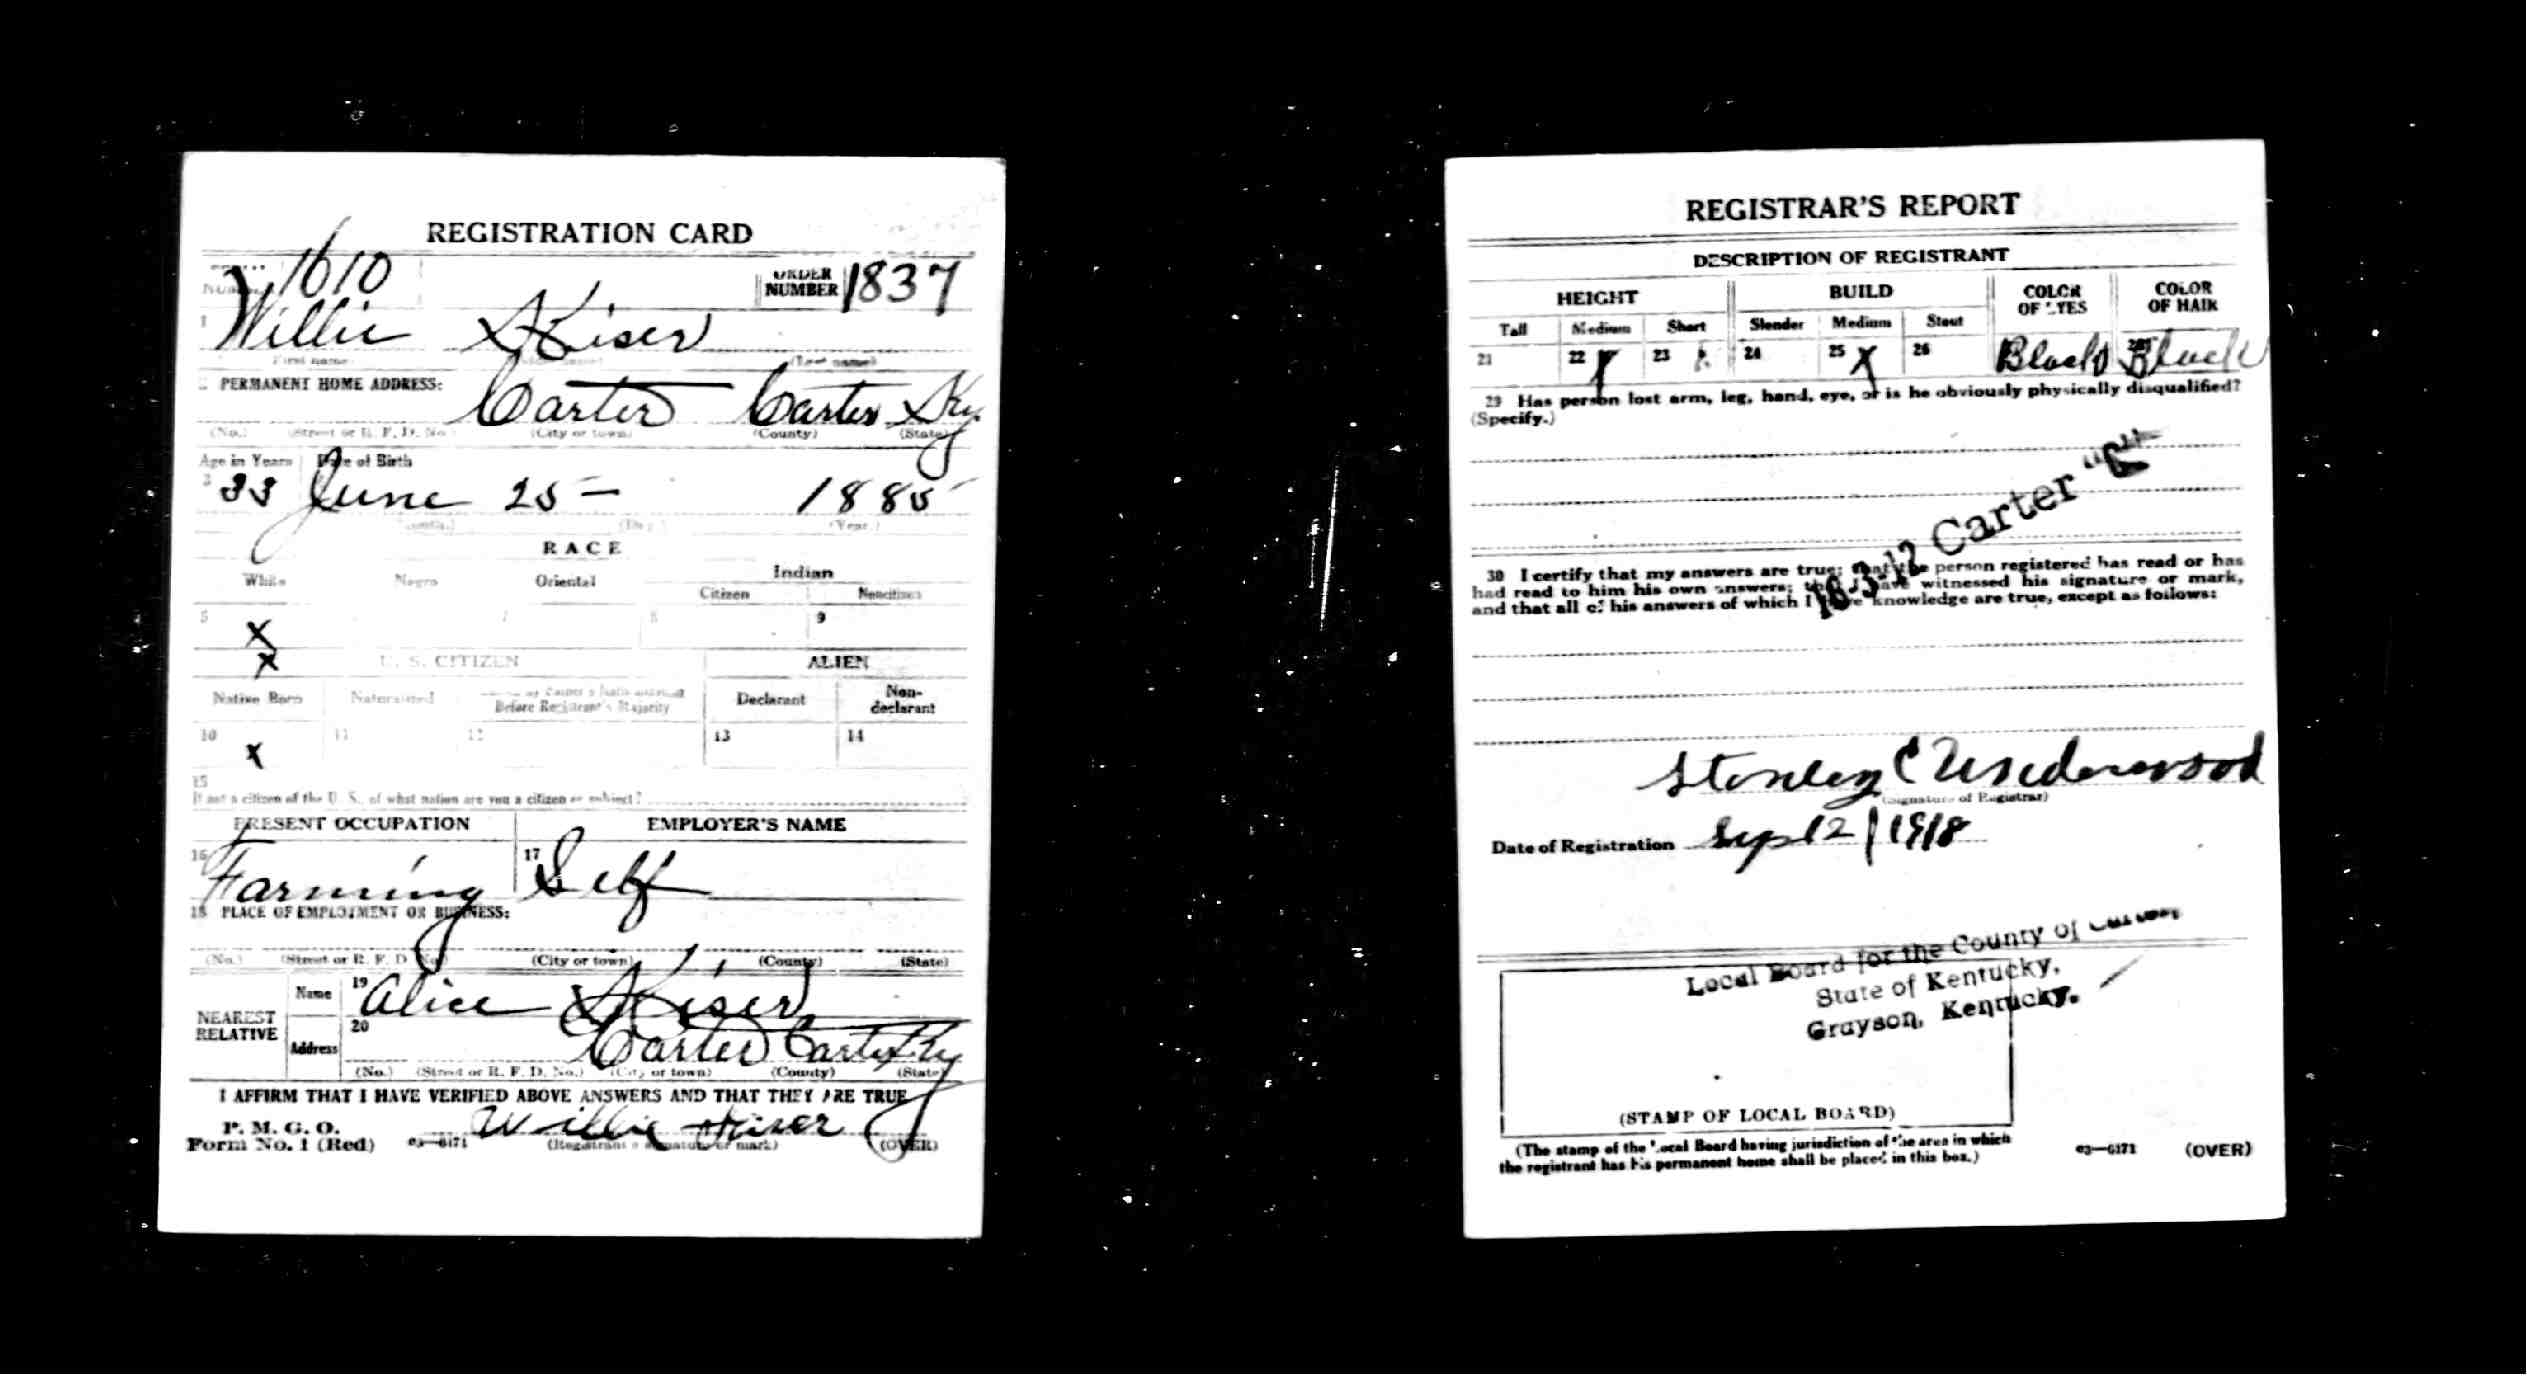 REGISTRATION CARD
1610
ORDER NUMBER 1837
1 Willie Kiser
(Last name)
PERMANENT HOME ADDRESS:
Carter Carter Ky.
(No.) (Street or R. F. D. No.) (City or town) (County) (State)
Age in Years Date of Birth
33 June 25 - 1885
(Month.) (Day.) (Year.)
RACE
White Negro Oriental Indian
Citizen Noncitizen
5 X 7 8 9
X U. S. CITIZEN ALIEN
Native Born Naturalized Before Registrant's Majority Declarant Non-declarant
10 X 11 12 13 14
15
If not a citizen of the U. S., of what nation are you a citizen or subject?
PRESENT OCCUPATION EMPLOYER'S NAME
16 Farming 17 Self
18 PLACE OF EMPLOYMENT OR BUSINESS:
(No.) (Street or R. F. D. No.) (City or town) (County) (State)
NEAREST RELATIVE
Name 19 Alice Kiser
Address 20 Carter Carter Ky
(No.) (Street or R. F. D. No.) (City or town) (County) (State)
I AFFIRM THAT I HAVE VERIFIED ABOVE ANSWERS AND THAT THEY ARE TRUE
P. M. G. O.
Form No. 1 (Red) 03—6171 Willie Kiser (OVER)
(Registrant's signature or mark)
REGISTRAR'S REPORT
DESCRIPTION OF REGISTRANT
HEIGHT BUILD COLOR OF EYES COLOR OF HAIR
Tall Medium Short Slender Medium Stout
21 22 X 23 24 25 X 26 Black Black
29 Has person lost arm, leg, hand, eye, or is he obviously physically disqualified?
(Specify.)
16-3-12 Carter "C"
30 I certify that my answers are true; that the person registered has read or has
had read to him his own answers; that I have witnessed his signature or mark,
and that all of his answers of which I have knowledge are true, except as follows:
Stanley C Underwood
(Signature of Registrar)
Date of Registration Sep 12 / 1918
Local Board for the County of Carter
State of Kentucky,
Grayson, Kentucky.
(STAMP OF LOCAL BOARD)
(The stamp of the Local Board having jurisdiction of the area in which
the registrant has his permanent home shall be placed in this box.)
03—6171 (OVER)